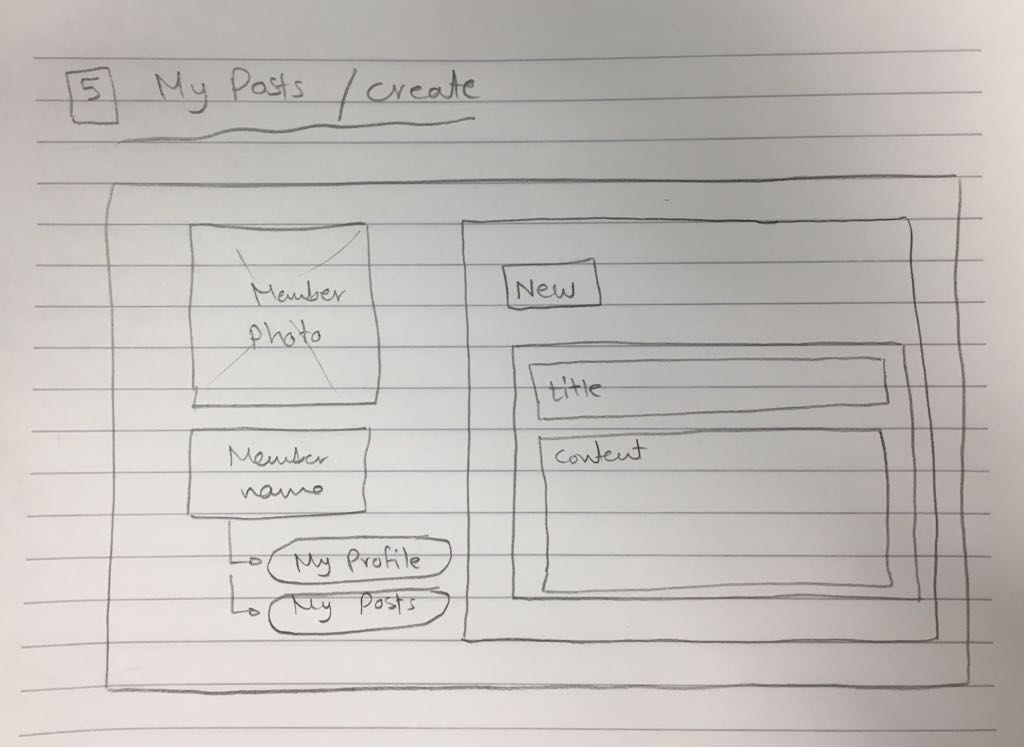 5 My Posts / create
Member
photo
Member
name
My Profile
My Posts
New
title
Content